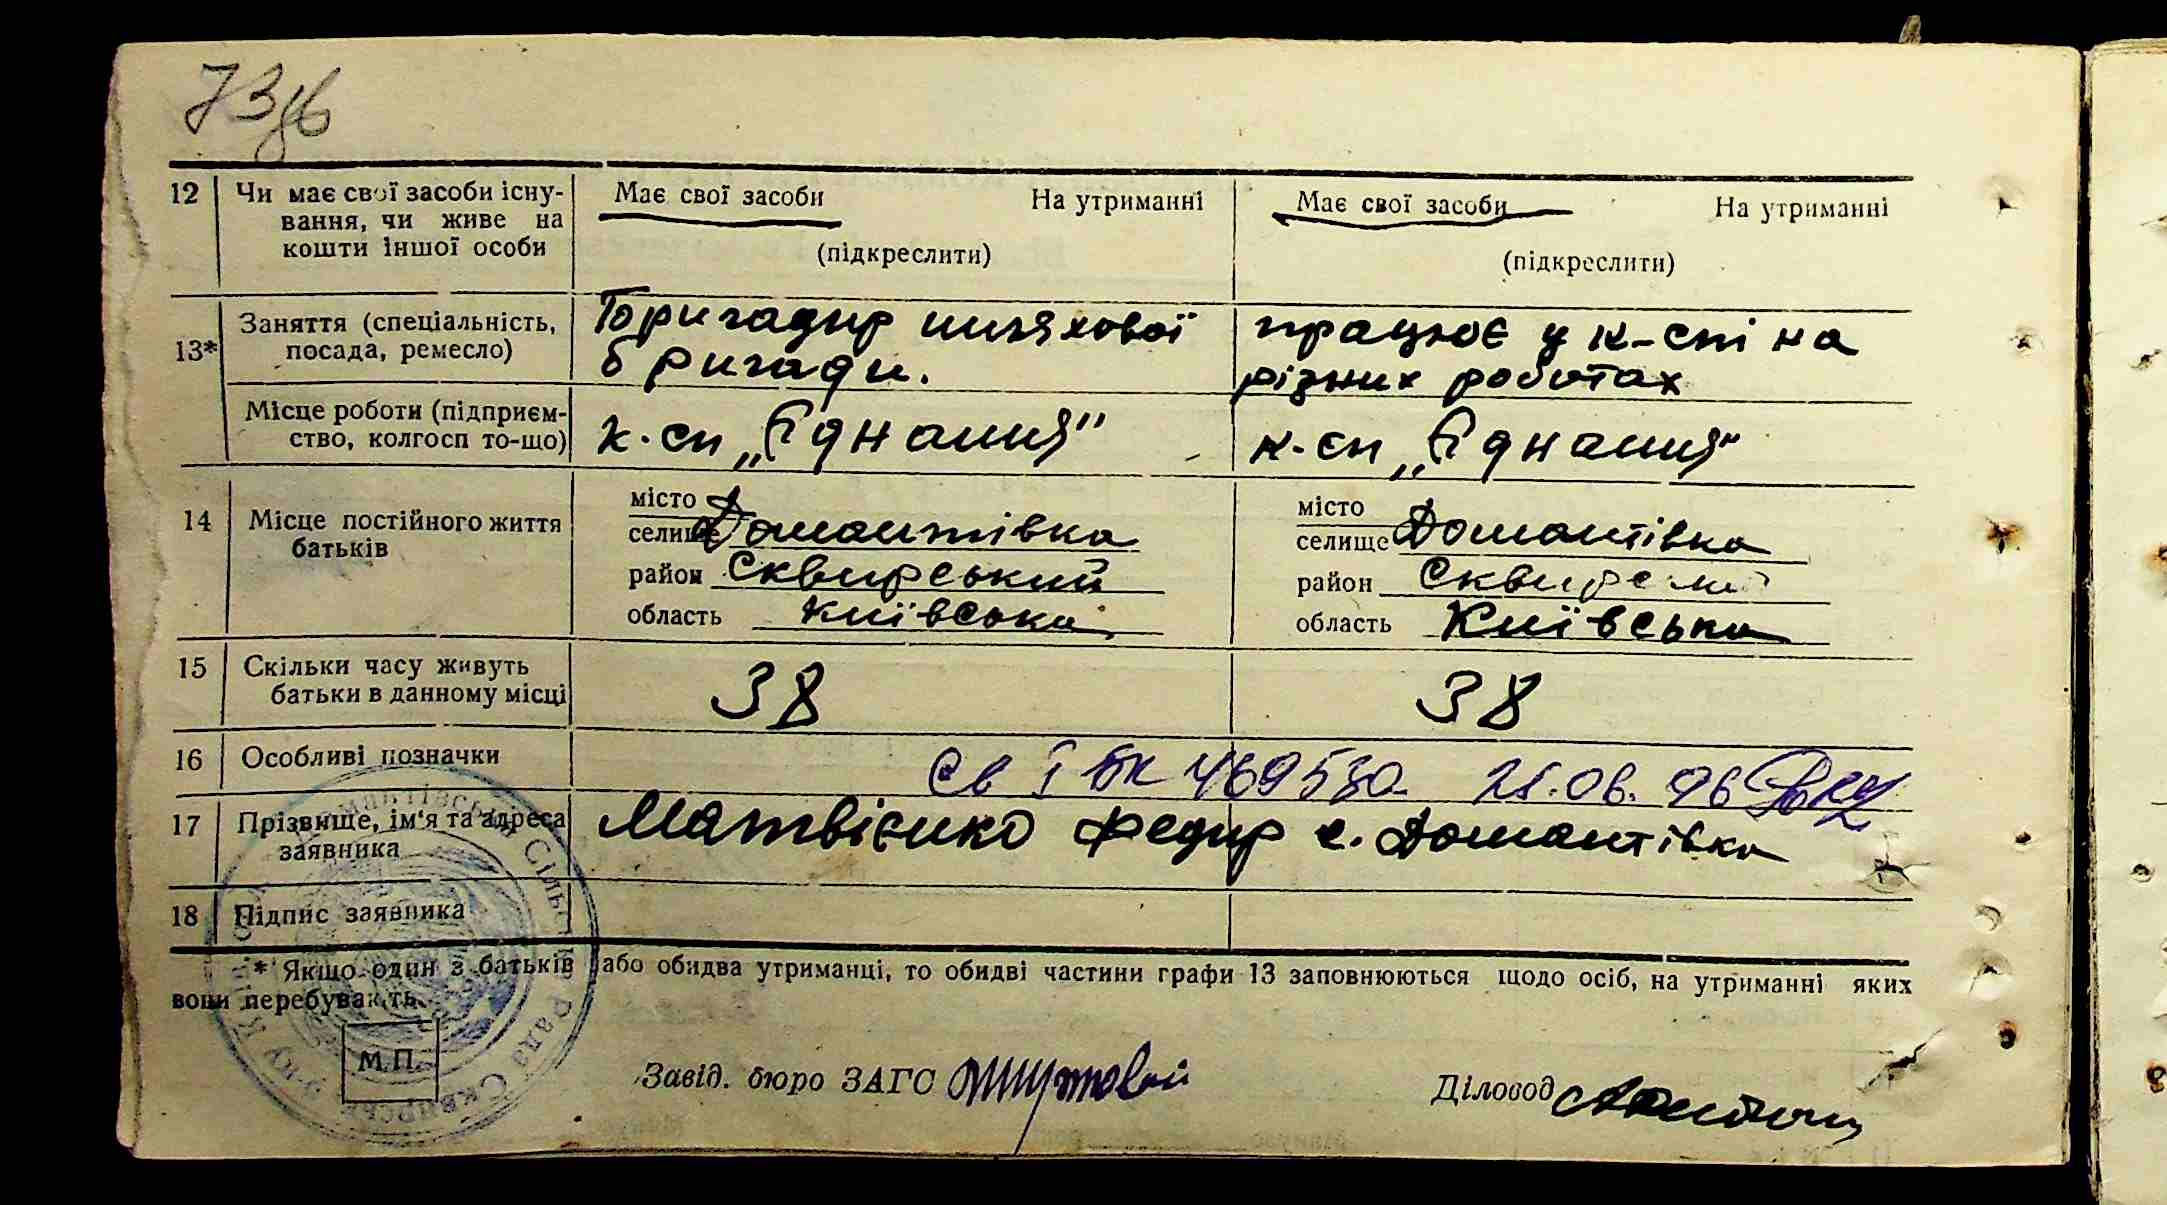 73зв
12 Чи має свої засоби існу- Має свої засоби На утриманні Має свої засоби На утриманні
вання, чи живе на
кошти іншої особи (підкреслити) (підкреслити)
13* Заняття (спеціальність, Бригадир шляхової працює у к-спі на
посада, ремесло) бригади. різних роботах
Місце роботи (підприєм- к-сп „Єднання" к-сп „Єднання"
ство, колгосп то-що)
14 Місце постійного життя місто місто
батьків селище Домантівка селище Домантівка
район Сквирський район
область Київська область Київська
15 Скільки часу живуть 38 38
батьки в данному місці
16 Особливі позначки Св І БК 469530 21.06.96
17 Прізвище, ім'я та адреса Матвієнко Федир с. Домантівка
заявника
18 Підпис заявника
* Якщо один з батьків або обидва утриманці, то обидві частини графи 13 заповнюються щодо осіб, на утриманні яких
вони перебувають.
М.П. Завід. бюро ЗАГС Діловод